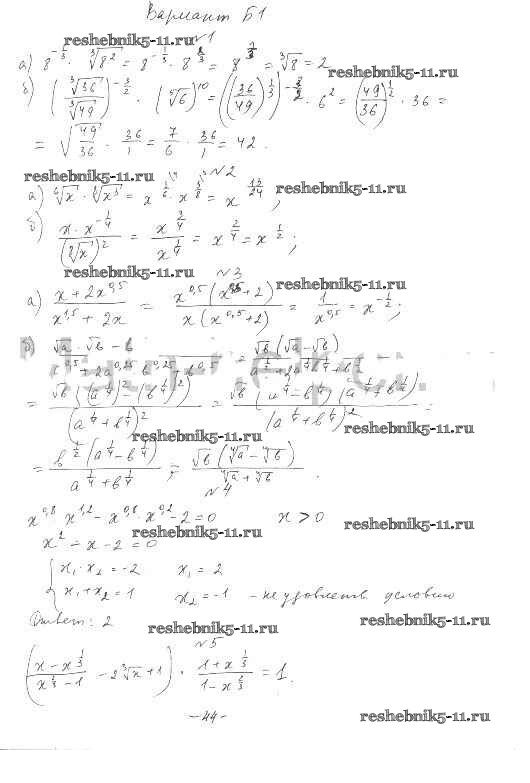 Вариант Б1
reshebnik5-11.ru
№1
а) 8^{-1/3} · ∛8² = 8^{-1/3} · 8^{2/3} = 8^{1/3} = ∛8 = 2
reshebnik5-11.ru
б) (∛36 / ∛49)^{-3/2} · (⁵√6)^{10} = ((36/49)^{1/3})^{-3/2} · 6² = (49/36)^{1/2} · 36 =
= √(49/36) · 36/1 = 7/6 · 36/1 = 42.
reshebnik5-11.ru
№2
а) ⁶√x · ⁸√x³ = x^{1/6} · x^{3/8} = x^{13/24},
reshebnik5-11.ru
б) (x · x^{-1/4}) / (⁸√x)² = x^{3/4} / x^{1/4} = x^{2/4} = x^{1/2};
reshebnik5-11.ru
№3
reshebnik5-11.ru
а) (x + 2x^{0,5}) / (x^{1,5} + 2x) = x^{0,5}(x^{0,5} + 2) / x(x^{0,5} + 2) = 1 / x^{0,5} = x^{-1/2};
б) (√a · √b − b) / (a^{0,5} + 2a^{0,25} b^{0,25} + b^{0,5}) = √b(√a − √b) / (a^{1/2} + 2a^{1/4} b^{1/4} + b^{1/2}) =
= √b((a^{1/4})² − (b^{1/4})²) / (a^{1/4} + b^{1/4})² = √b(a^{1/4} − b^{1/4})(a^{1/4} + b^{1/4}) / (a^{1/4} + b^{1/4})² =
reshebnik5-11.ru
reshebnik5-11.ru
= b^{1/2}(a^{1/4} − b^{1/4}) / (a^{1/4} + b^{1/4}) = √b(⁴√a − ⁴√b) / (⁴√a + ⁴√b).
№4
x^{0,8} · x^{1,2} − x^{0,8} · x^{0,2} − 2 = 0 x > 0
reshebnik5-11.ru
reshebnik5-11.ru
x² − x − 2 = 0
{ x₁ · x₂ = −2 x₁ = 2
x₁ + x₂ = 1 x₂ = −1 – не удовлетв. условию
Ответ: 2
reshebnik5-11.ru
reshebnik5-11.ru
№5
((x − x^{1/3}) / (x^{2/3} − 1) − 2∛x + 1) · (1 + x^{1/3}) / (1 − x^{2/3}) = 1.
– 44 –
reshebnik5-11.ru